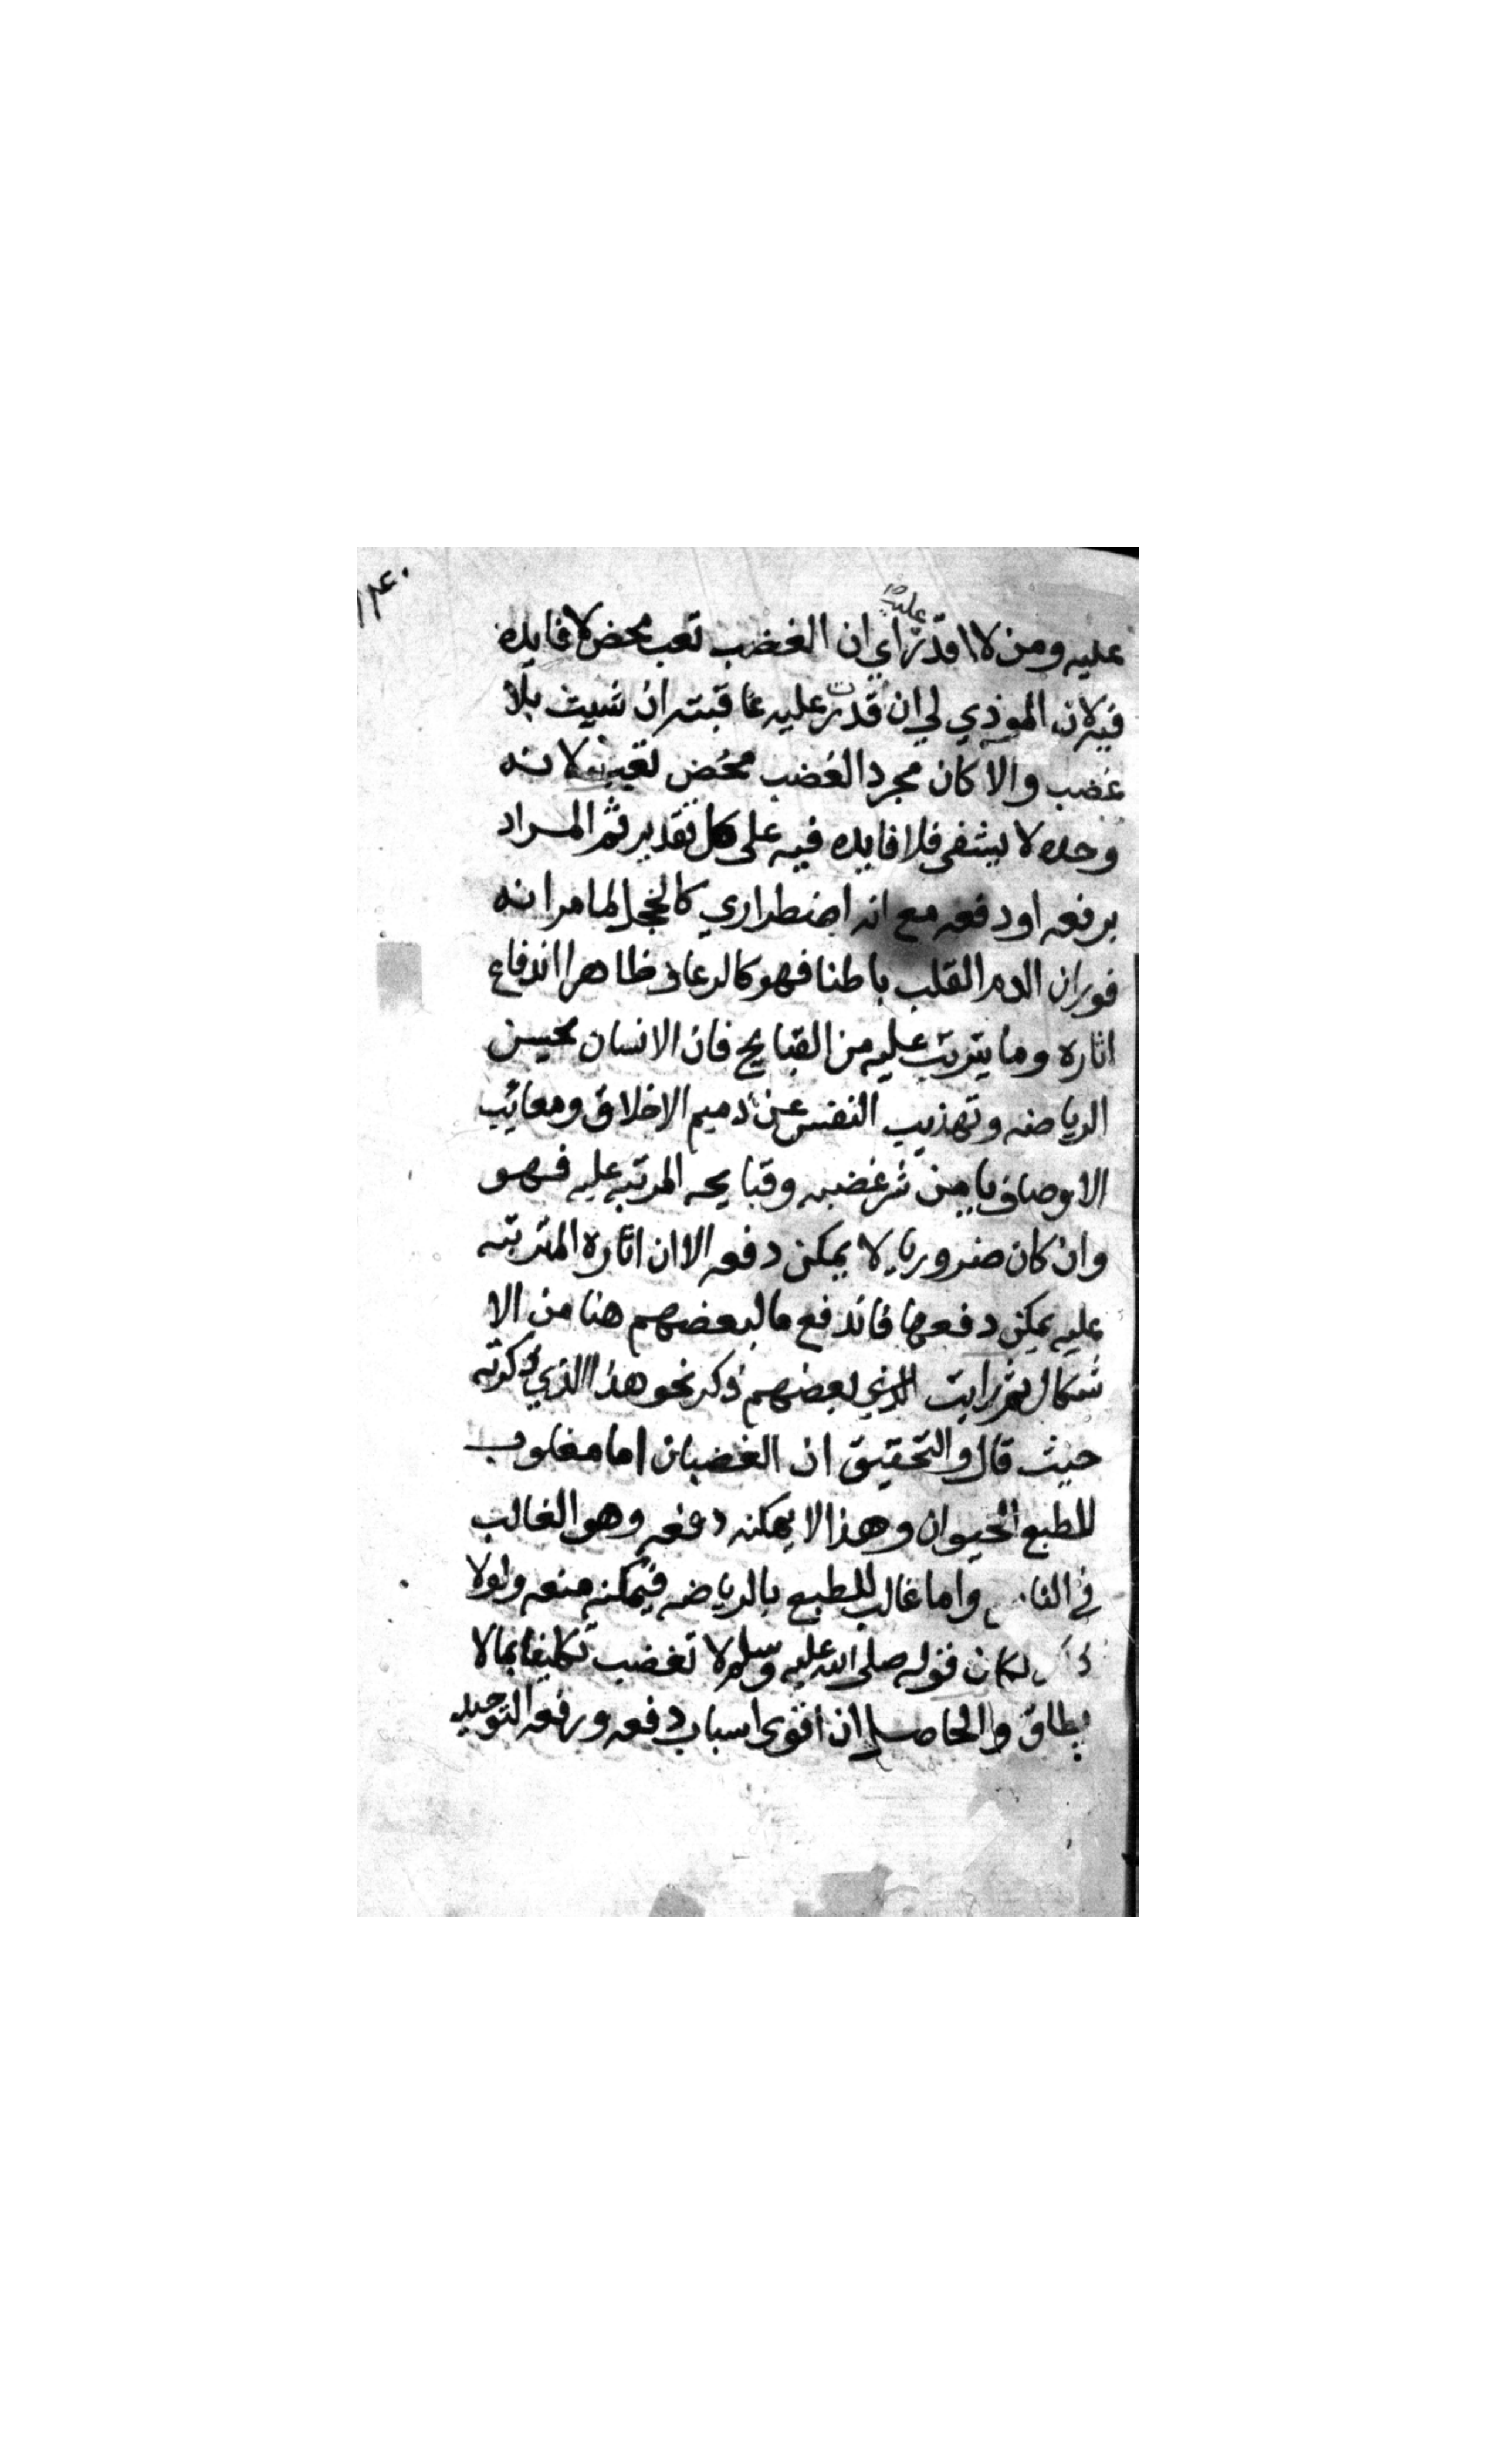 ١٤٠
عليه
عليه ومن لا اقدر اي ان الغضب تعب محض لا فايده
فيه لان الموذي لي ان قدرت عليه عاقبته ان شيت بلا
غضب والا كان مجرد الغضب محض تعب لانه
وحده لا يشفي فلا فايده فيه على كل تقدير ثم المراد
برفعه او دفعه مع انه اضطراري كالخجل لما مر انه
فوران الدم القلب باطنا فهو كالرعاد ظاهرا اندفاع
اثاره وما يترتب عليه من القبايح فان الانسان بحسن
الرياضه وتهذيب النفس عن ذميم الاخلاق ومعائب
الاوصاف يامن شر غضبه وقبايحه المرتبه عليه فهو
وان كان ضروريا لا يمكن دفعه الا ان اثاره المترتبه
عليه يمكن دفعها فاندفع ما لبعضهم هنا من الا
شكال ثم رايت بعضهم ذكر نحو هذا الذي ذكرته
حيث قال والتحقيق ان الغضبان اما مغلوب
للطبع الحيوان وهذا لا يمكنه دفعه وهو الغالب
في الناس واما غالب للطبع بالرياضه فيمكنه منعه ولولا
ذلك لكان قوله صلى الله عليه وسلم لا تغضب تكليفا بما لا
يطاق والحاصل ان اقوى اسباب دفعه ورفعه التوحيد